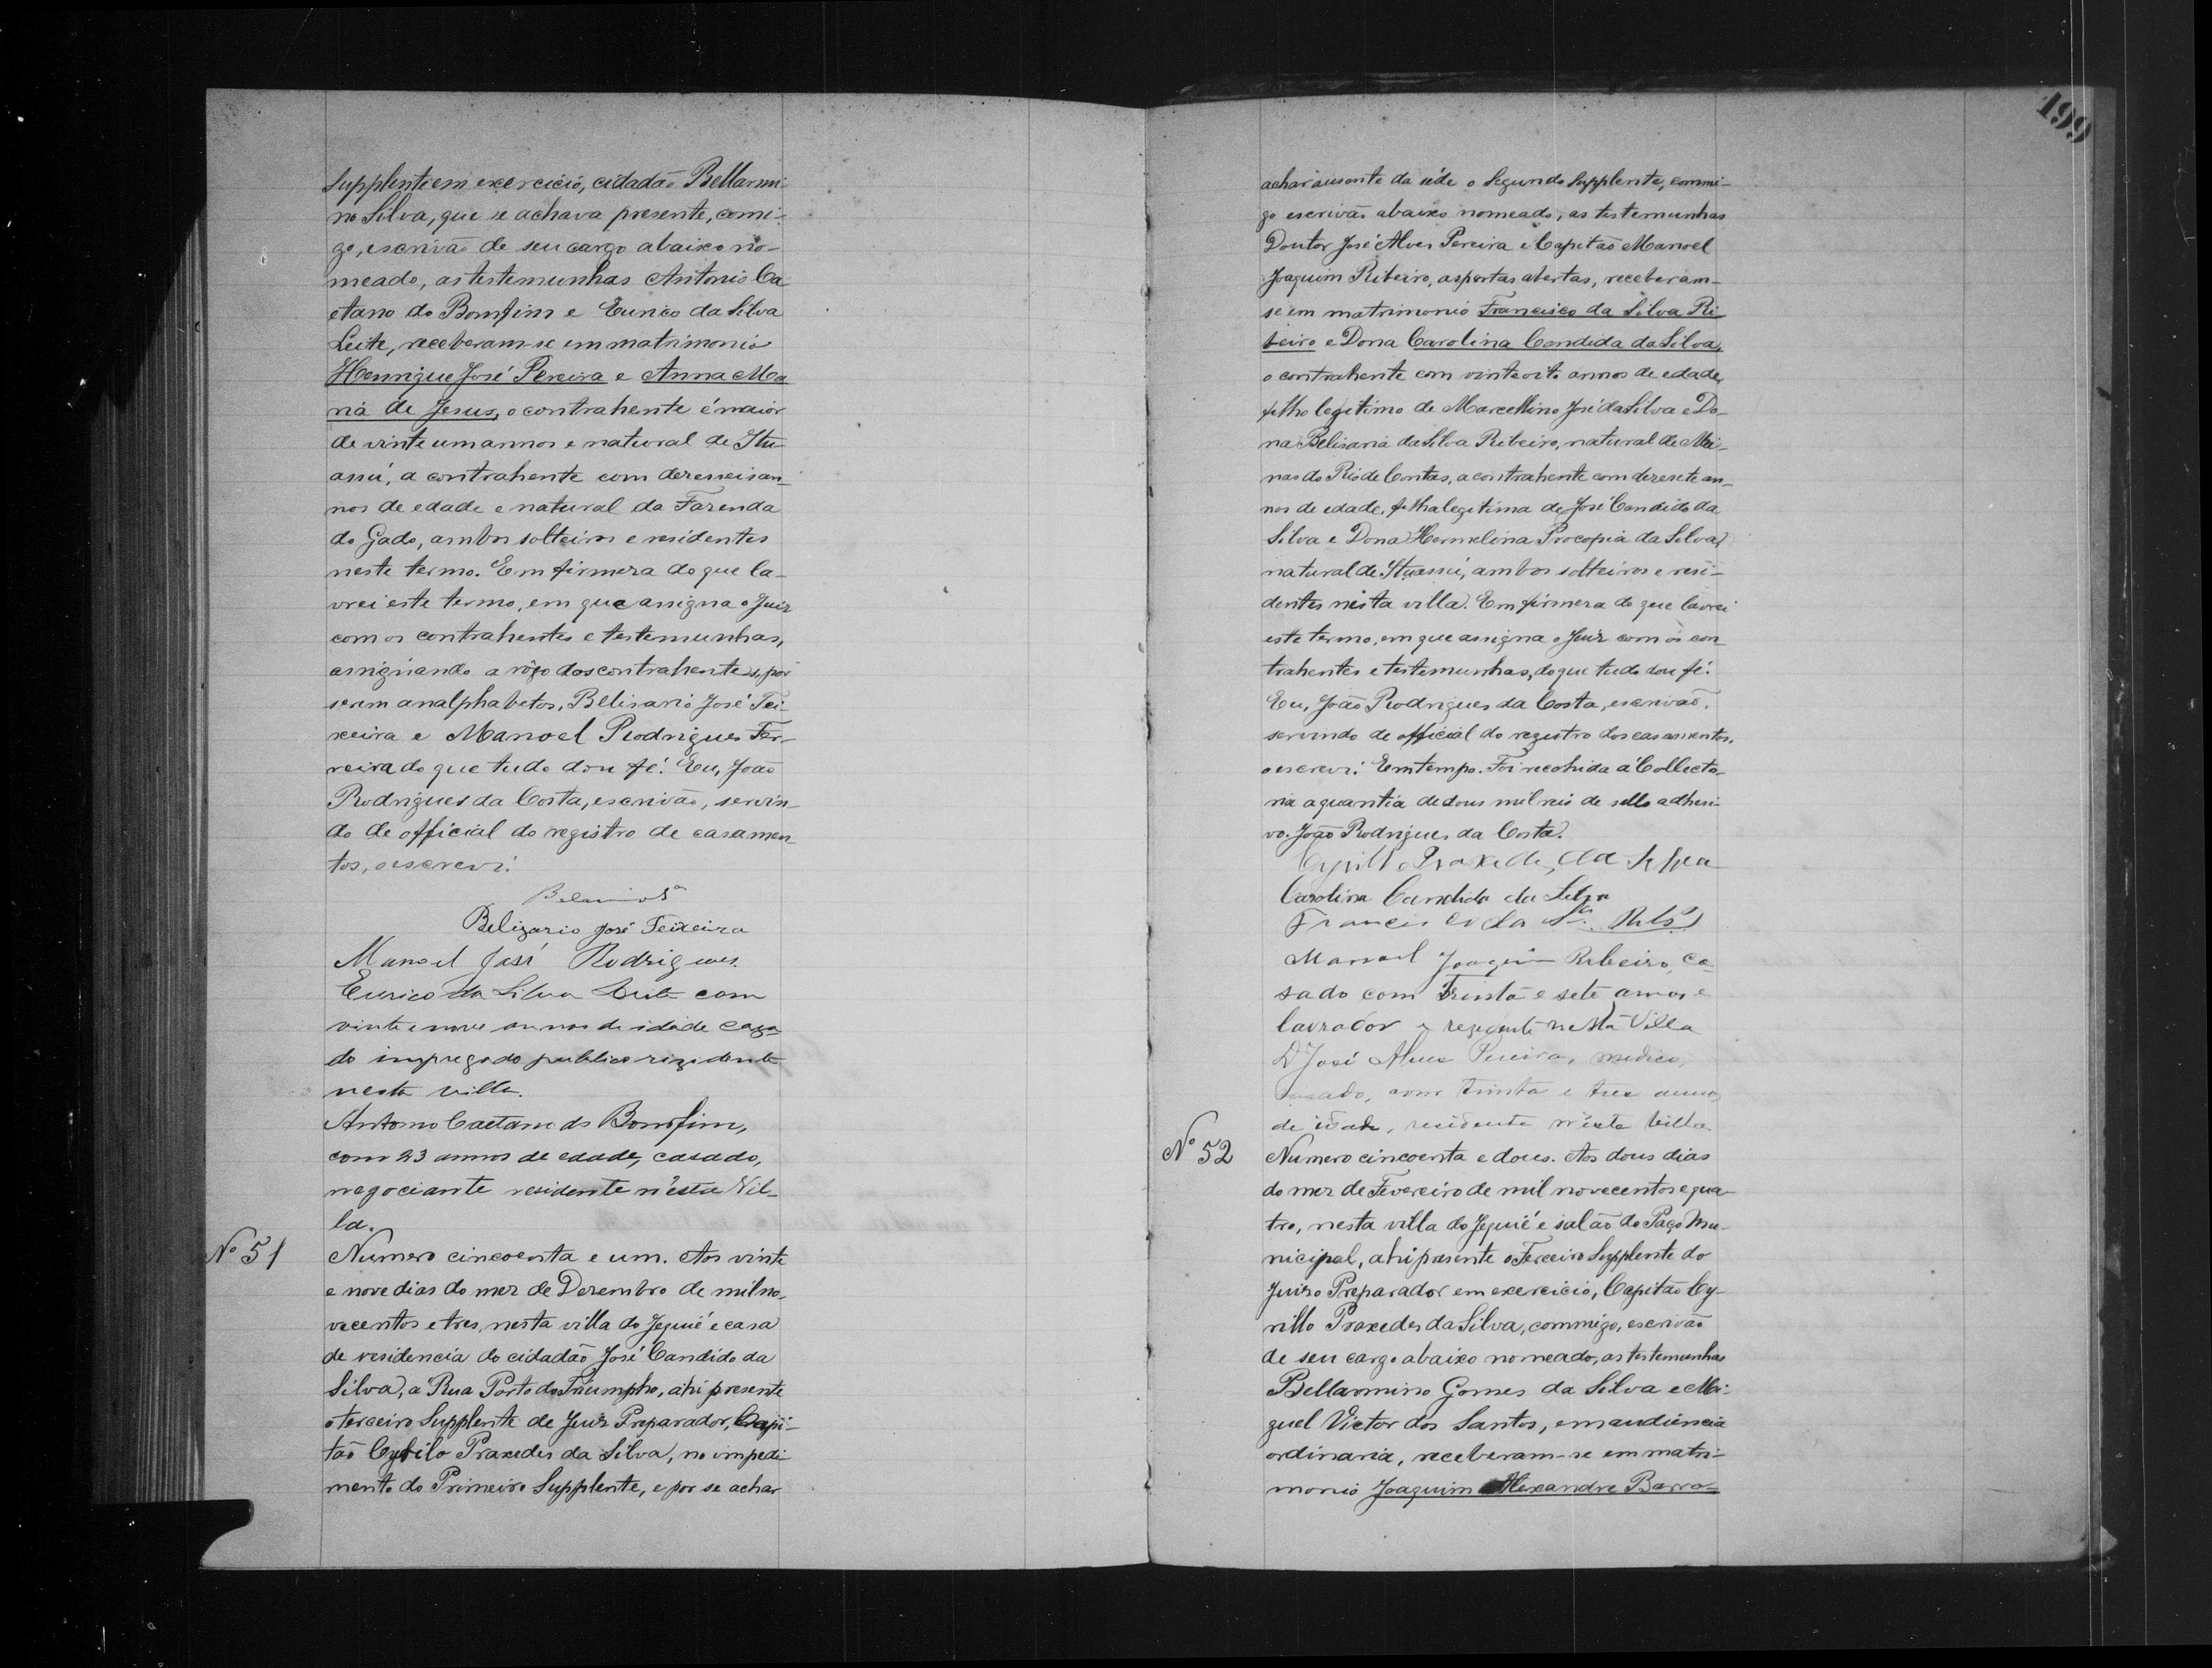 supplente em exercicio, cidadão Bellarmi-
no Silva, que se achava presente, comi-
go, escrivão de seu cargo abaixo no-
meado, as testemunhas Antonio Ca
etano do Bomfim e Eurico da Silva
Leite, receberam-se em matrimonio
Henrique José Pereira e Anna Ma
ria de Jesus, o contrahente é maior
de vinte um annos e natural de Itu-
assú, a contrahente com deresseis an-
nos de edade e natural da Fazenda
do Gado, ambos solteiros e residentes
neste termo. Em firmera do que la-
vrei este termo, em que assigna o Juiz
com os contrahentes e testemunhas,
assignando a rôgo dos contrahentes, por
serem analphabetos, Belisario José Tei-
xeira e Manoel Rodrigues Fer-
reira do que tudo dou fé. Eu, João
Rodrigues da Costa, escrivão, servin-
do de official do registro de casamen-
tos, o escrevi.
Belizario José Teixeira
Manoel José Rodrigues.
Eurico da Silva Leite com
vinte e nove annos de idade caza-
do impregado publico rizidente
nesta villa.
Antonio Caetano do Bomfim,
com 23 annos de edade, casado,
negociante residente n'esta Vil-
la.
Nº 51
Numero cincoenta e um. Aos vinte
e nove dias do mez de Dezembro de mil no-
vecentos e tres, nesta villa do Jequié e casa
de residencia do cidadão José Candido da
Silva, a Rua Porto do Triumpho, ahi presente
o terceiro Supplente de Juiz Preparador, Capi-
tão Cyrilo Praxedes da Silva, no impedi
mento do Primeiro Supplente, e por se achar
199
achar ausente da séde o Segundo Supplente, commi-
go escrivão abaixo nomeado, as testemunhas
Doutor José Alves Pereira e Capitão Manoel
Joaquim Ribeiro, as portas abertas, receberam-
se em matrimonio Francisco da Silva Ri
beiro e Dona Carolina Candida da Silva,
o contrahente com vinte oito annos de edade,
filho legitimo de Marcellino José da Silva e Do-
na Belisaria da Silva Ribeiro, natural de Mi-
nas do Rio de Contas, a contrahente com deresete an-
nos de edade, filha legitima de José Candido da
Silva e Dona Hermelina Procopia da Silva,
natural de Ituassú, ambos solteiros e resi-
dentes nesta villa. Em firmera do que lavrei
este termo, em que assigna o Juiz com os con
trahentes e testemunhas, do que tudo dou fé.
Eu, João Rodrigues da Costa, escrivão,
servindo de official do registro dos casamentos,
o escrevi. Em tempo. Foi recolhida á Collecto-
ria a quantia de dous mil reis de sello adhesi-
vo. João Rodrigues da Costa.
Cyrillo Praxedes da Silva
Carolina Candida da Silva
Francisco da Sª Ribº
Manoel Joaquim Ribeiro, ca-
sado com trinta e sete annos e
lavrador e rezidente nesta Villa
Dr José Alves Pereira, medico,
casado, com trinta e tres annos
de idade, residente n'esta Villa
Nº 52
Numero cincoenta e dous. Aos dous dias
do mez de Fevereiro de mil novecentos e qua-
tro, nesta villa do Jequié e salão do Paço Mu-
nicipal, ahi presente o Terceiro Supplente do
Juizo Preparador em exercicio, Capitão Cy-
rillo Praxedes da Silva, commigo, escrivão
de seu cargo abaixo nomeado, as testemunhas
Bellarmino Gomes da Silva e Mi-
guel Victor dos Santos, em audiencia
ordinaria, receberam-se em matri-
monio Joaquim Alexandre Barro-